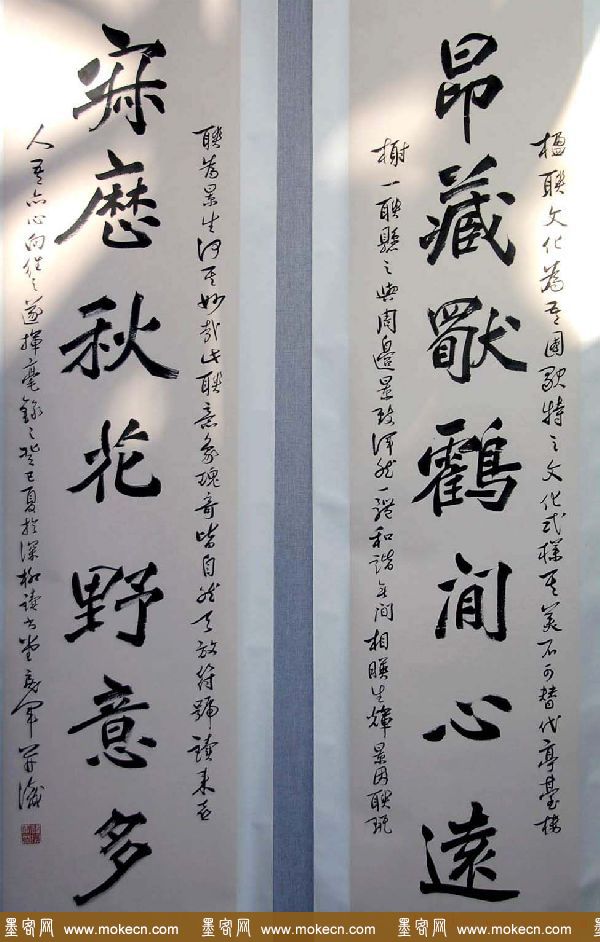 楹聯文化為吾國獨特之文化式樣其美不可替代亭臺樓
昂藏獨鸖閒心遠
榭一聯懸之與周邊景致渾然一體和諧無間相暎生輝景因聯靚
聯為景生何其妙哉此聯意象瑰奇皆自然天放符號讀來喜
寂歷秋花野意多
人吾亦心向往之遂揮毫錄之癸巳夏於深柳讀書堂軍并識
墨客网 www.mokecn.com 墨客网 www.mokecn.com 墨客网 www.mokecn.com